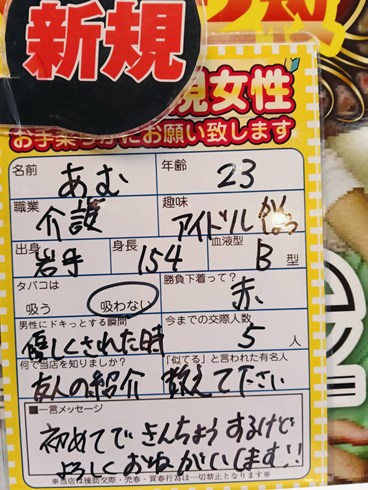 新規
規女性
お手柔らかにお願い致します
名前 あむ 年齢 23
職業 介護 趣味 アイドル
出身 岩手 身長 154 血液型 B型
タバコは 吸う 吸わない 勝負下着って? 赤
男性にドキっとする瞬間 優しくされた時 今までの交際人数 5人
何で当店を知りましたか? 友人の紹介 「似てる」と言われた有名人 教えて下さい
■一言メッセージ
初めてできんちょうするけど
よろしくおねがいします!!
※当店は援助交際・売春・買春行為は一切禁止となります※